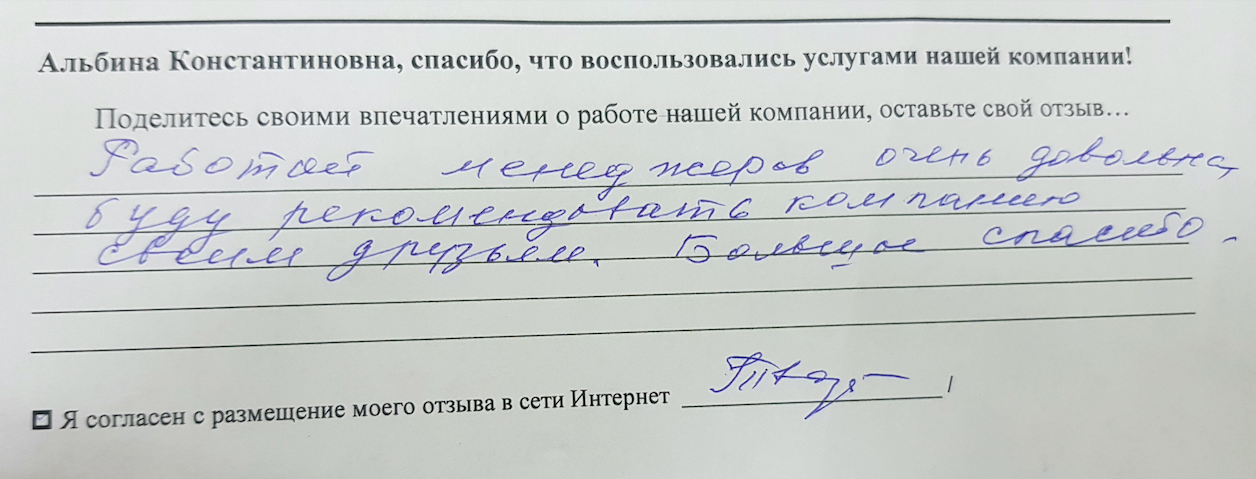 Альбина Константиновна, спасибо, что воспользовались услугами нашей компании!
Поделитесь своими впечатлениями о работе нашей компании, оставьте свой отзыв...
Работой менеджеров очень довольна,
буду рекомендовать компанию
своим друзьям. Большое спасибо.
Я согласен с размещение моего отзыва в сети Интернет /